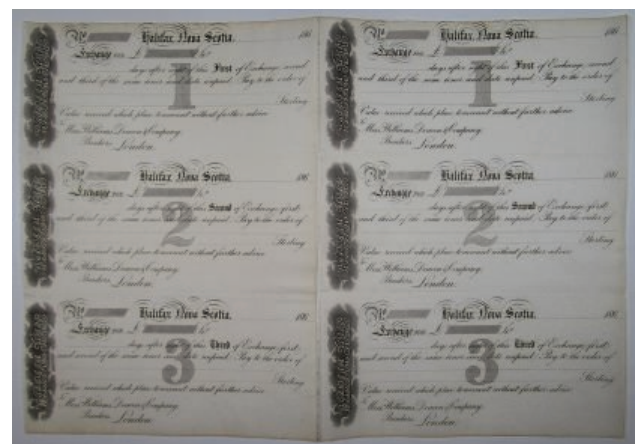 No Halifax, Nova Scotia, 186
Exchange FOR £ Stg
days after sight of this First of Exchange, second
and third of the same tenor and date unpaid Pay to the order of
1
Sterling
Value received which place to account without further advice
To
Mess Williams, Deacon & Company
Bankers London
No Halifax, Nova Scotia, 186
Exchange FOR £ Stg
days after sight of this First of Exchange, second
and third of the same tenor and date unpaid Pay to the order of
1
Sterling
Value received which place to account without further advice
To
Mess Williams, Deacon & Company
Bankers London
No Halifax, Nova Scotia, 186
Exchange FOR £ Stg
days after sight of this Second of Exchange, first
and third of the same tenor and date unpaid Pay to the order of
2
Sterling
Value received which place to account without further advice
To
Mess Williams, Deacon & Company
Bankers London
No Halifax, Nova Scotia, 186
Exchange FOR £ Stg
days after sight of this Second of Exchange, first
and third of the same tenor and date unpaid Pay to the order of
2
Sterling
Value received which place to account without further advice
To
Mess Williams, Deacon & Company
Bankers London
No Halifax, Nova Scotia, 186
Exchange FOR £ Stg
days after sight of this Third of Exchange, first
and second of the same tenor and date unpaid Pay to the order of
3
Sterling
Value received which place to account without further advice
To
Mess Williams, Deacon & Company
Bankers London
No Halifax, Nova Scotia, 186
Exchange FOR £ Stg
days after sight of this Third of Exchange, first
and second of the same tenor and date unpaid Pay to the order of
3
Sterling
Value received which place to account without further advice
To
Mess Williams, Deacon & Company
Bankers London